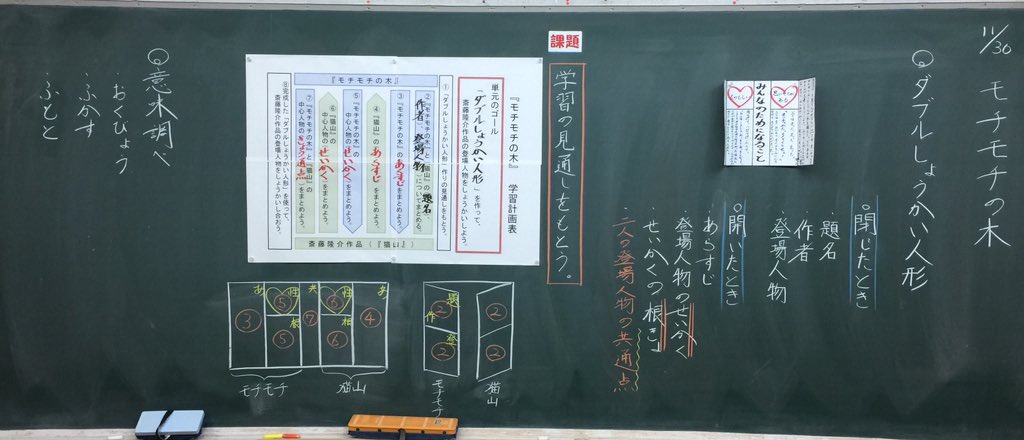 11/30
モチモチの木
◎ダブルしょうかい人形
◎閉じたとき
題名
作者
登場人物
◎開いたとき
あらすじ
登場人物のせいかく
せいかくの根きょ
二人の登場人物の共通点
みんなのためになること
課題
学習の見通しをもとう。
『モチモチの木』 学習計画表
単元のゴール
「ダブルしょうかい人形」を作って、
斎藤隆介作品の登場人物をしょうかいしよう。
①「ダブルしょうかい人形」作りの見通しをもとう。
②『モチモチの木』と『猫山』の題名、
作者、登場人物についてまとめる。
③『モチモチの木』の
あらすじをまとめよう。
④『猫山』の
あらすじをまとめよう。
⑤『モチモチの木』の
中心人物のせいかくをまとめよう。
⑥『猫山』の
中心人物のせいかくをまとめよう。
⑦『モチモチの木』と『猫山』の
中心人物のきょう通点をまとめよう。
⑧完成した「ダブルしょうかい人形」を使って、
斎藤隆介作品の登場人物をしょうかいし合おう。
『モチモチの木』
斎藤隆介作品(『猫山』)
②
②
猫山
題
②
作
登
②
モチモチ
あ
④
性
⑥
根
⑥
猫山
共
⑦
性
⑤
根
⑤
あ
③
モチモチ
◎意味調べ
・おくびょう
・ふかす
・ふもと